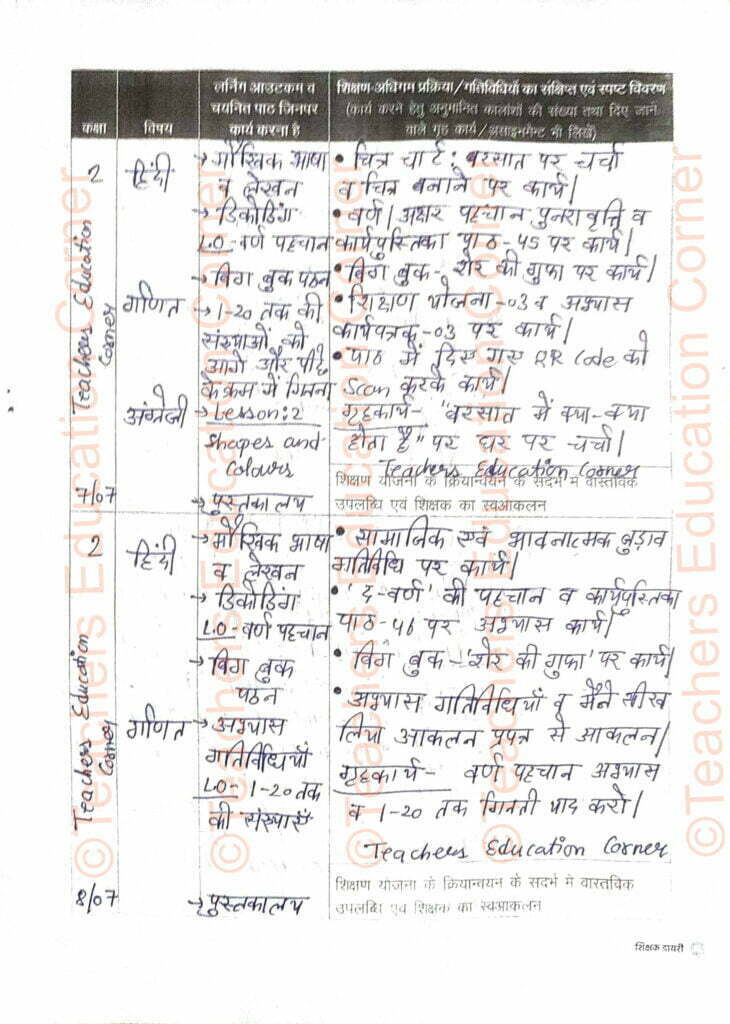 कक्षा
विषय
लर्निंग आउटकम व
चयनित पाठ जिनपर
कार्य करना है
शिक्षण-अधिगम प्रक्रिया/गतिविधियों का संक्षिप्त एवं स्पष्ट विवरण
(कार्य करने हेतु अनुमानित कालांशों की संख्या तथा दिए जाने
वाले गृह कार्य/असाइनमेन्ट भी लिखें)
2
7/07
हिंदी
गणित
अंग्रेजी
→ मौखिक भाषा
व लेखन
→ डिकोडिंग
L.O- वर्ण पहचान
→ बिग बुक पठन
→ 1-20 तक की
संख्याओं को
आगे और पीछे
के क्रम में गिनना
→ Lesson:2
Shapes and
Colours
→ पुस्तकालय
• चित्र चार्ट: बरसात पर चर्चा
व चित्र बनाने पर कार्य|
• वर्ण/अक्षर पहचान पुनरावृत्ति व
कार्यपुस्तिका पाठ-45 पर कार्य|
• बिग बुक- शेर की गुफा पर कार्य|
• शिक्षण योजना-03 व अभ्यास
कार्यपत्रक-03 पर कार्य|
• पाठ में दिए गए QR Code को
Scan करके कार्य|
गृहकार्य- "बरसात में क्या-क्या
होता है" पर घर पर चर्चा|
Teachers Education Corner
शिक्षण योजना के क्रियान्वयन के सदर्भ मे वास्तविक
उपलब्धि एवं शिक्षक का स्वआकलन
2
8/07
हिंदी
गणित
→ मौखिक भाषा
व लेखन
→ डिकोडिंग
L.O- वर्ण पहचान
→ बिग बुक
पठन
→ अभ्यास
गतिविधियाँ
L.O- 1-20 तक
की संख्याएँ
→ पुस्तकालय
• सामाजिक एवं भावनात्मक जुड़ाव
गतिविधि पर कार्य|
• 'द-वर्ण' की पहचान व कार्यपुस्तिका
पाठ-46 पर अभ्यास कार्य|
• बिग बुक-'शेर की गुफा' पर कार्य|
• अभ्यास गतिविधियाँ व मैंने सीख
लिया आकलन प्रपत्र से आकलन|
गृहकार्य- वर्ण पहचान अभ्यास
व 1-20 तक गिनती याद करो|
Teachers Education Corner
शिक्षण योजना के क्रियान्वयन के सदर्भ मे वास्तविक
उपलब्धि एव शिक्षक का स्वआकलन
शिक्षक डायरी
Teachers Education
Corner
Teachers Education
Corner
©Teachers Education Corner
©Teachers Education Corner
©Teachers Education Corner
©Teachers Education Corner